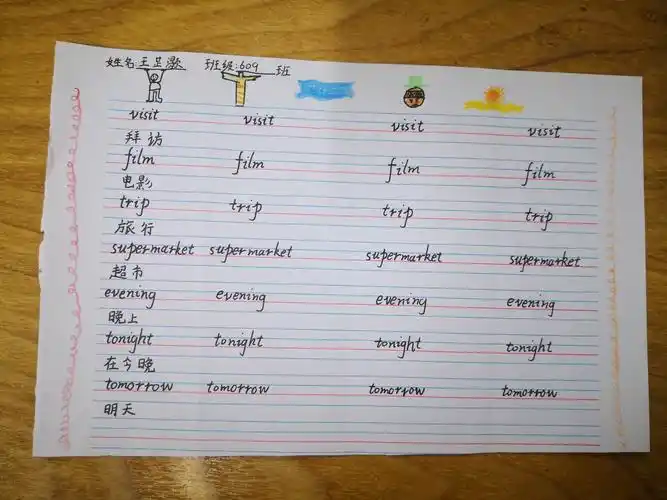 姓名王芷歌 班级:609班
visit visit visit visit
拜访
film film film film
电影
trip trip trip trip
旅行
supermarket supermarket supermarket supermarket
超市
evening evening evening evening
晚上
tonight tonight tonight tonight
在今晚
tomorrow tomorrow tomorrow tomorrow
明天